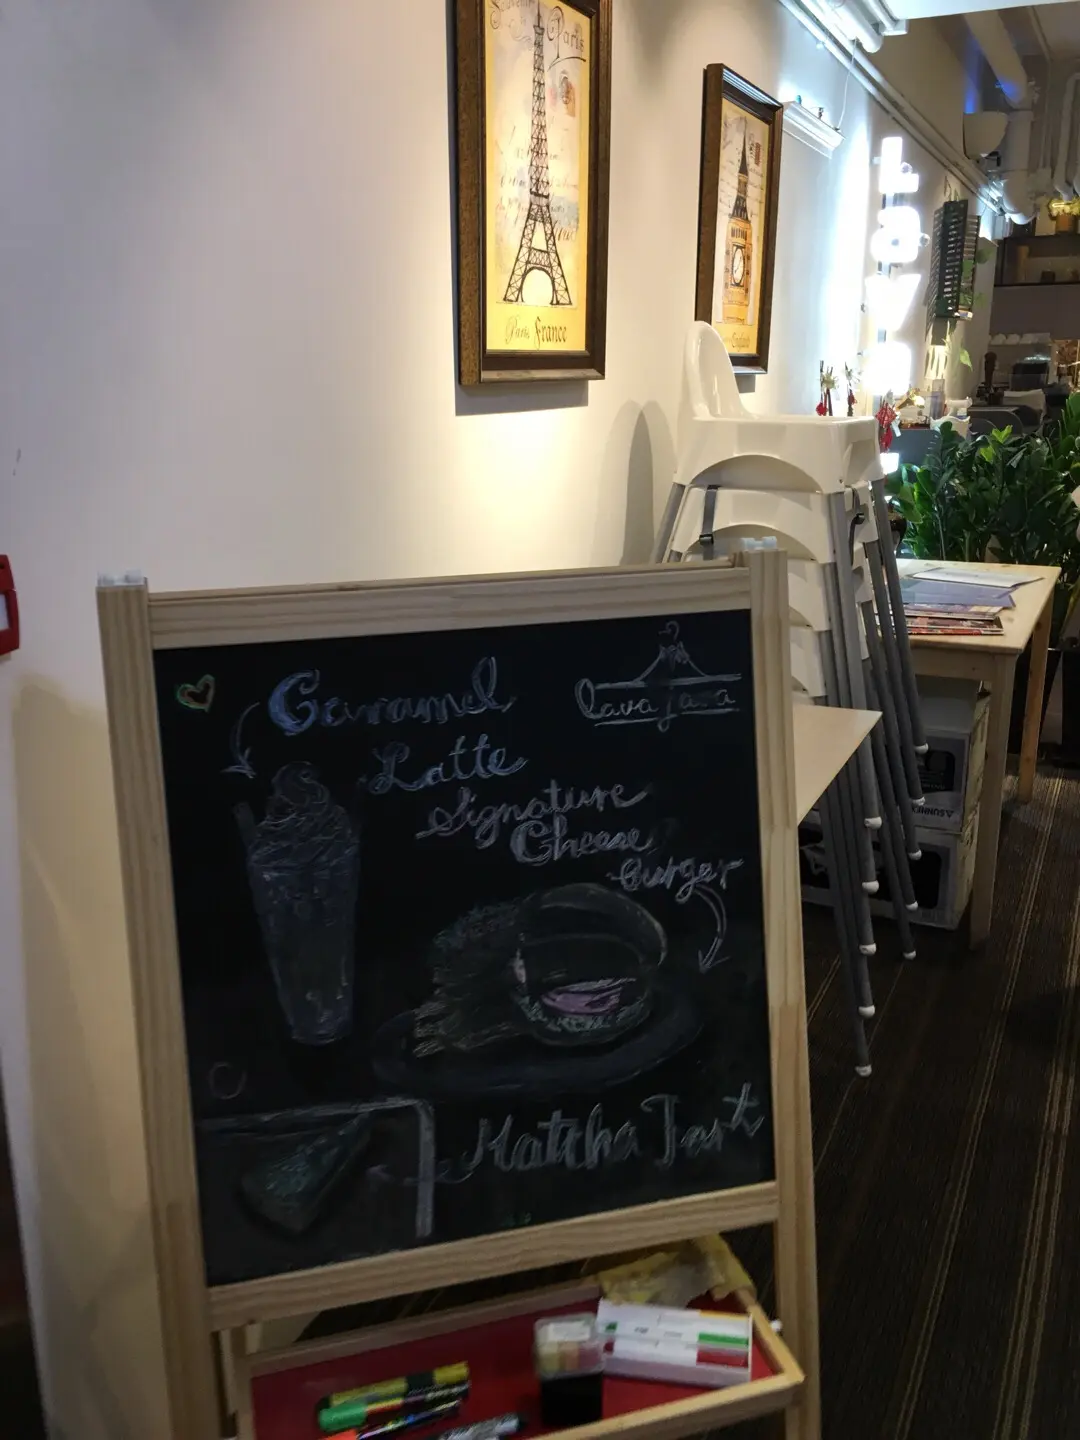 Souvenir de Paris
Paris, France
England
Lava
Caramel
Latte
Lava Java
Signature
Cheese
Burger
Matcha Tart